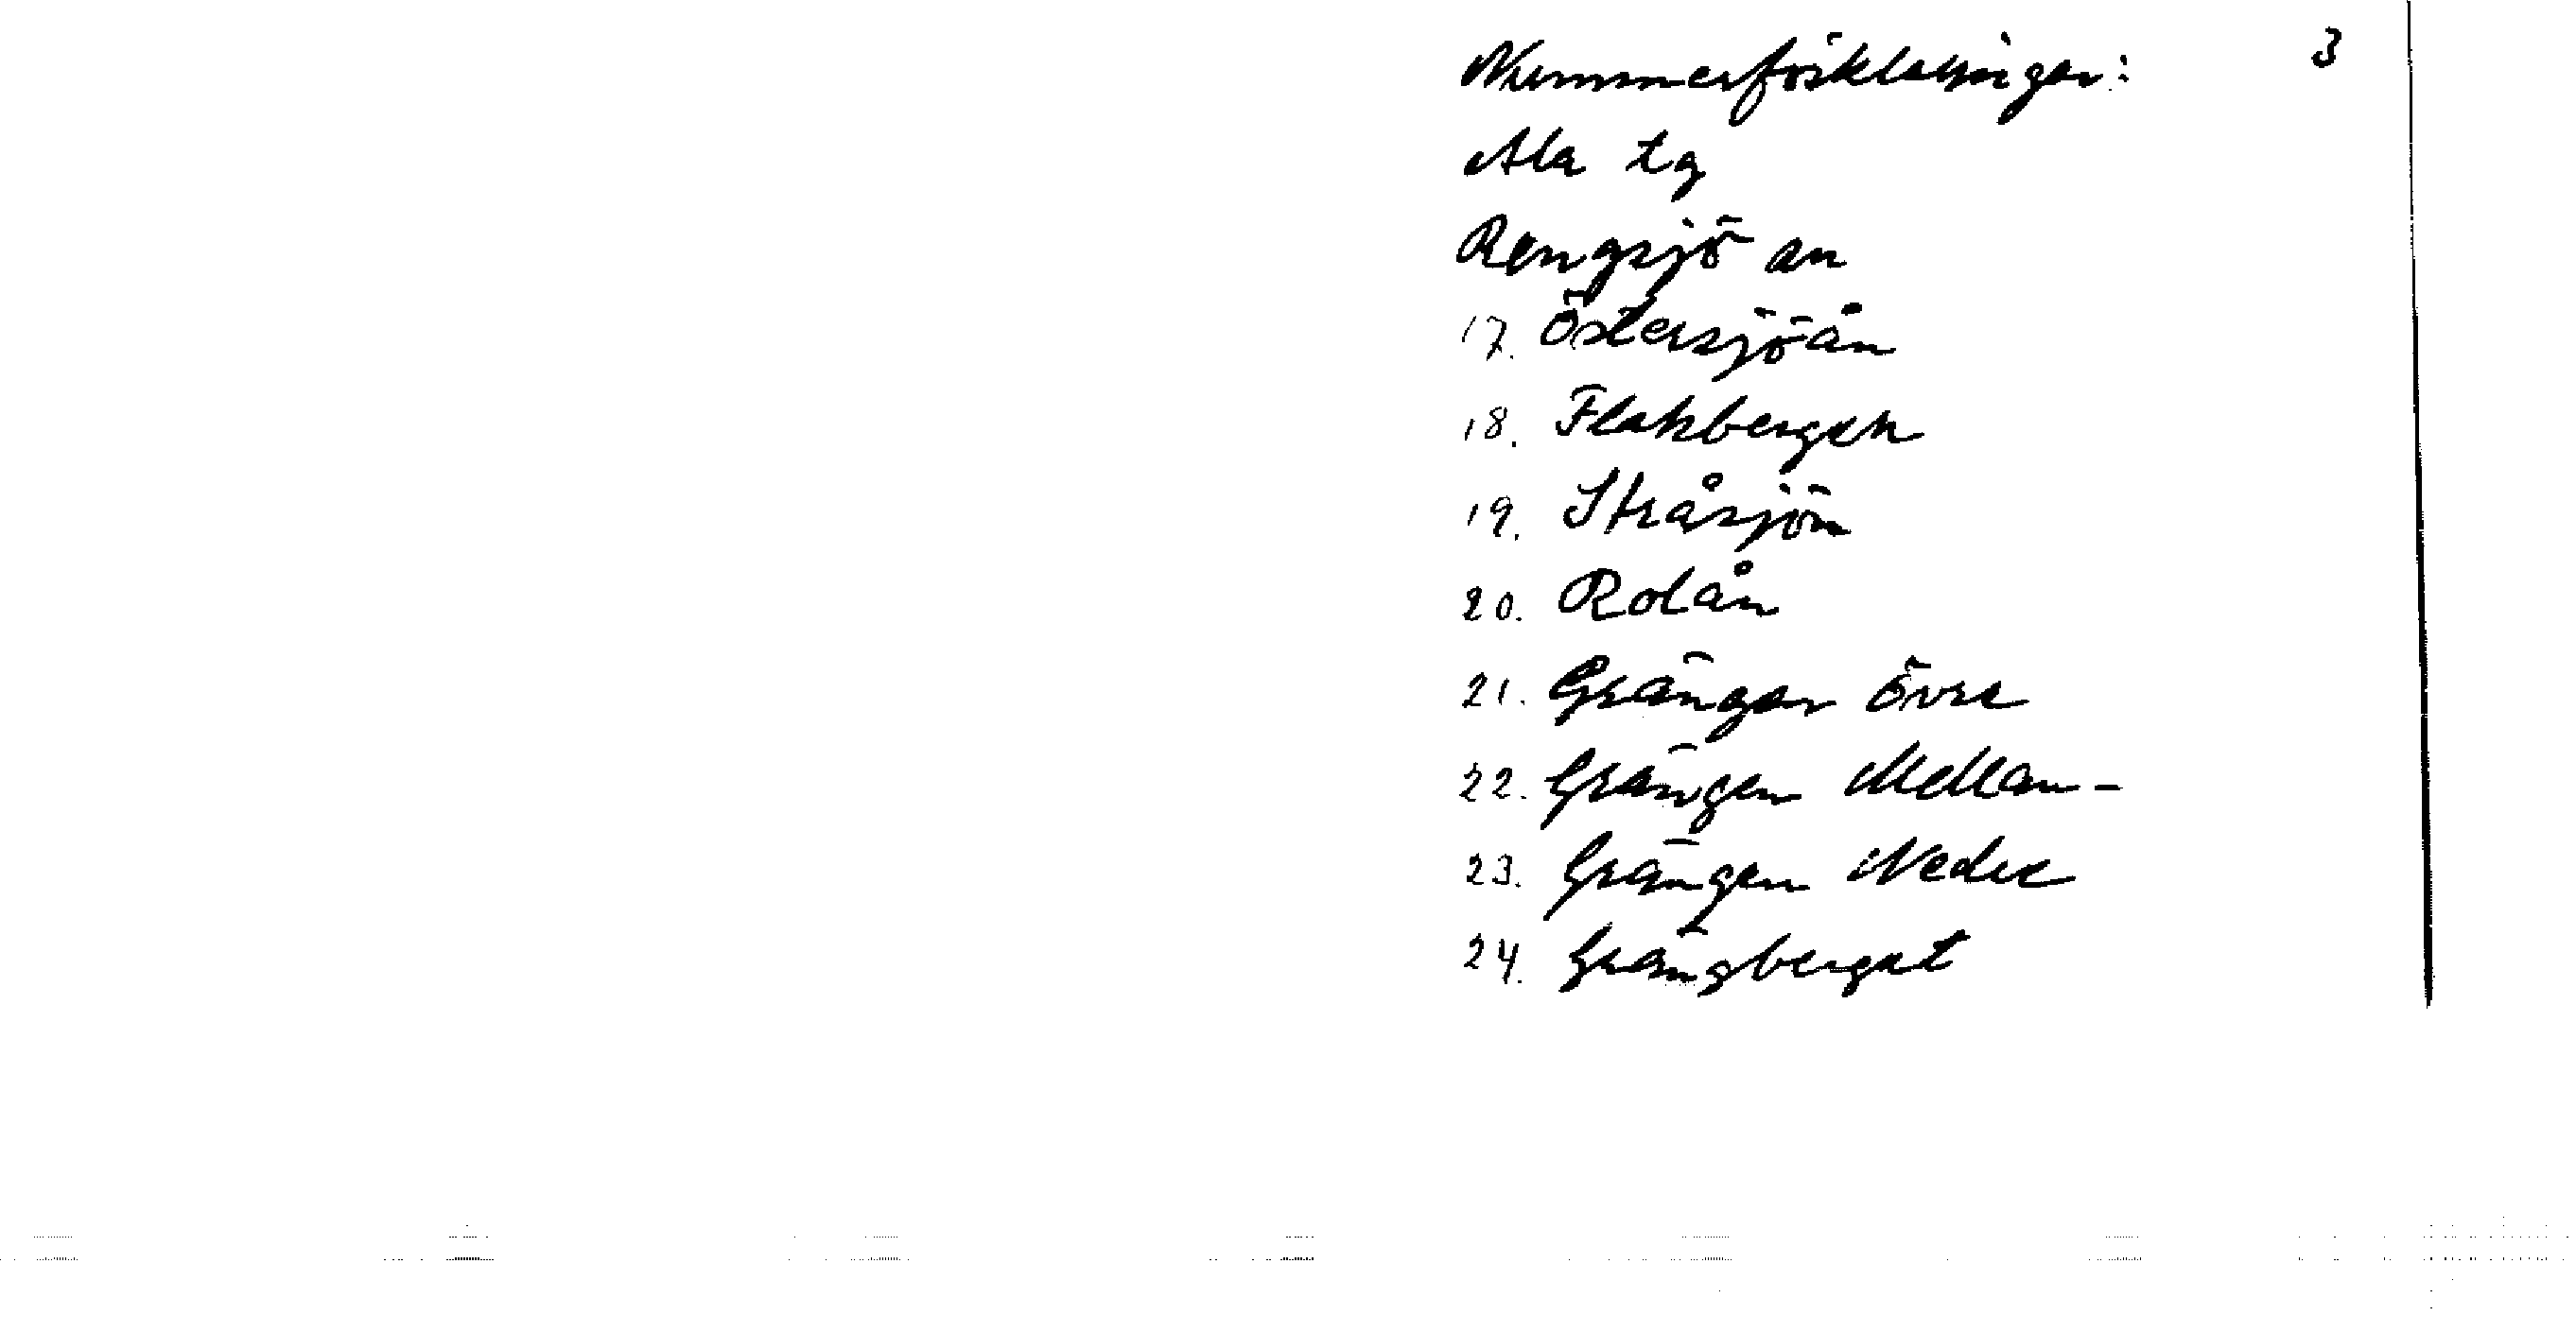 Nummerförklaringar: 3
Ala tg
Rengsjö an
17. Östersjöån
18. Flakbergen
19. Stråsjön
20. Rolån
21. Grängen övre
22. Grängen Mellan-
23. Grängen Nedre
24. Grängberget